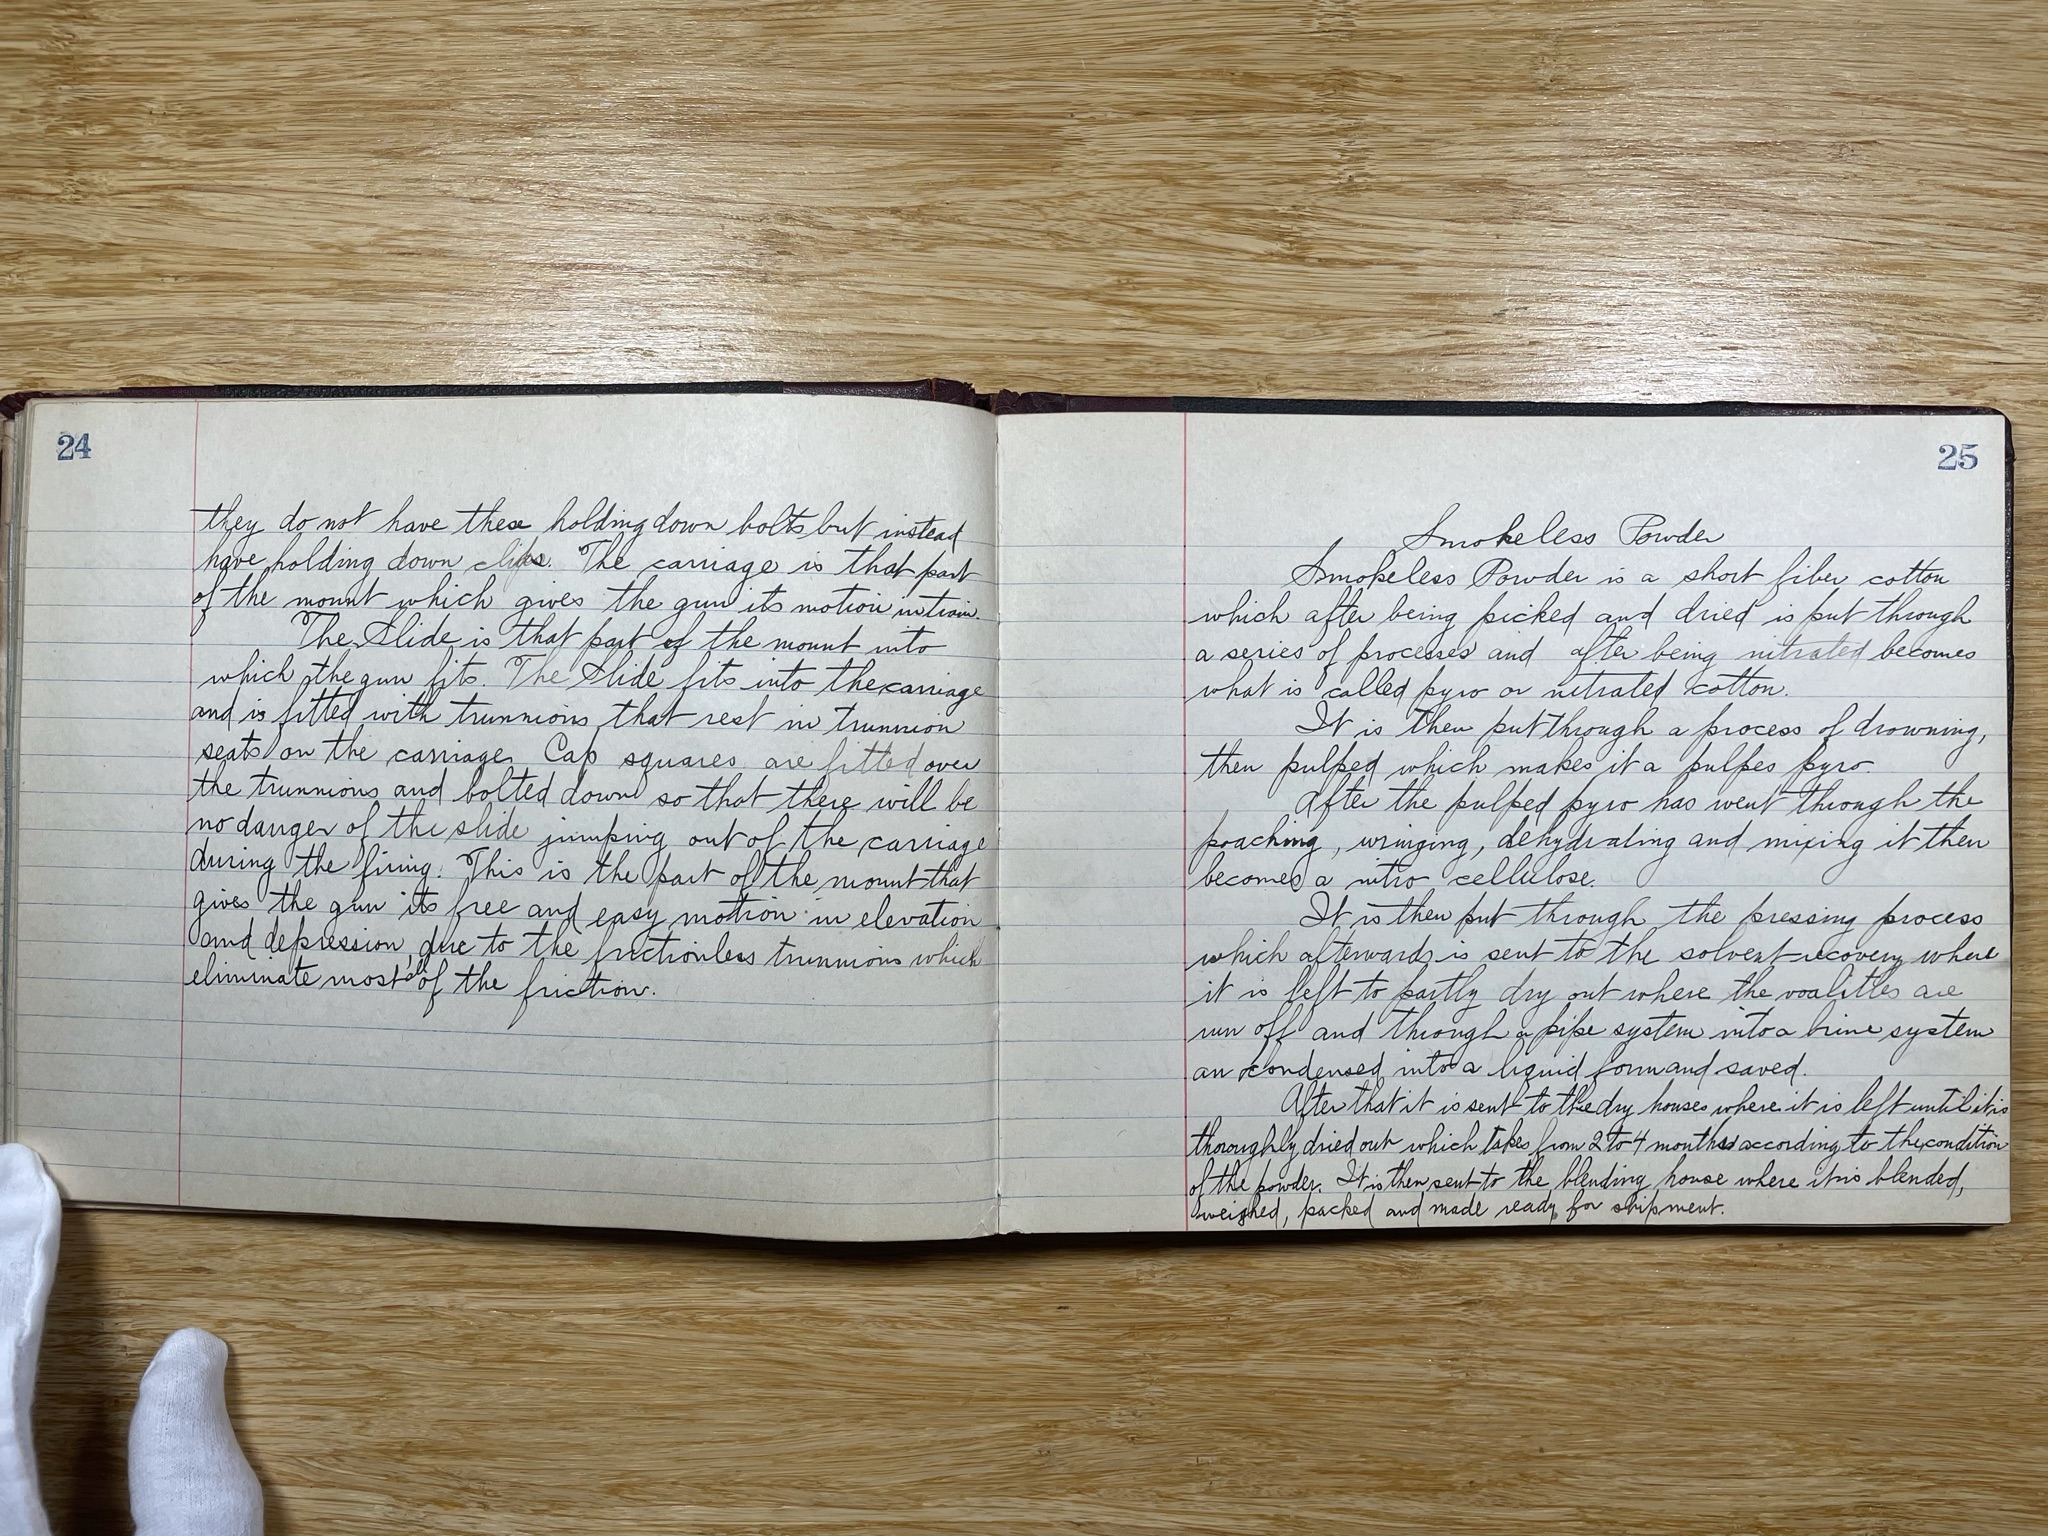 24
they do not have these holding down bolts but instead
have holding down clips. The carriage is that part
of the mount which gives the gun its motion in train.
The Slide is that part of the mount into
which the gun fits. The Slide fits into the carriage
and is fitted with trunnions that rest in trunnion
seats on the carriage. Cap squares are fitted over
the trunnions and bolted down so that there will be
no danger of the slide jumping out of the carriage
during the firing. This is the part of the mount that
gives the gun its free and easy motion in elevation
and depression, due to the frictionless trunnions which
eliminate most of the friction.
25
Smokeless Powder
Smokeless Powder is a short fiber cotton
which after being picked and dried is put through
a series of processes and after being nitrated becomes
what is called pyro or nitrated cotton.
It is then put through a process of drowning,
then pulped which makes it a pulpes pyro.
After the pulped pyro has went through the
poaching, wringing, dehydrating and mixing it then
becomes a nitro cellulose.
It is then put through the pressing process
which afterwards is sent to the solvent recovery where
it is left to partly dry out where the voalitles are
run off and through a pipe system into a brine system
an condensed into a liquid form and saved.
After that it is sent to the dry houses where it is left until it is
thoroughly dried out which takes from 2 to 4 months according to the condition
of the powder. It is then sent to the blending house where it is blended,
weighed, packed and made ready for shipment.